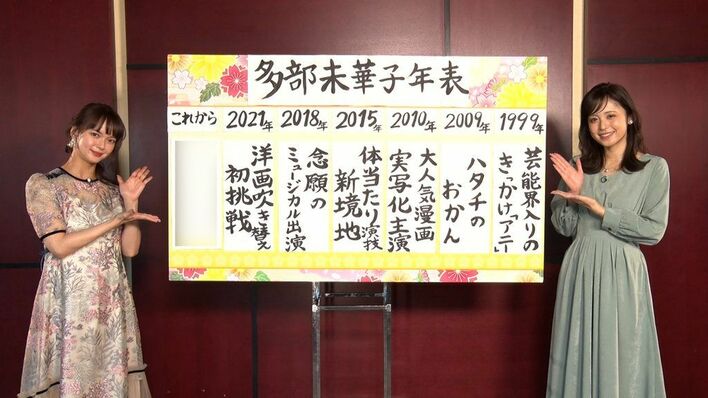 多部未華子年表
1999年
芸能界入りの
きっかけ「アニー」
2009年
ハタチの
おかん
2010年
大人気漫画
実写化主演
2015年
体当たり演技
新境地
2018年
念願の
ミュージカル出演
2021年
洋画吹き替え
初挑戦
これから